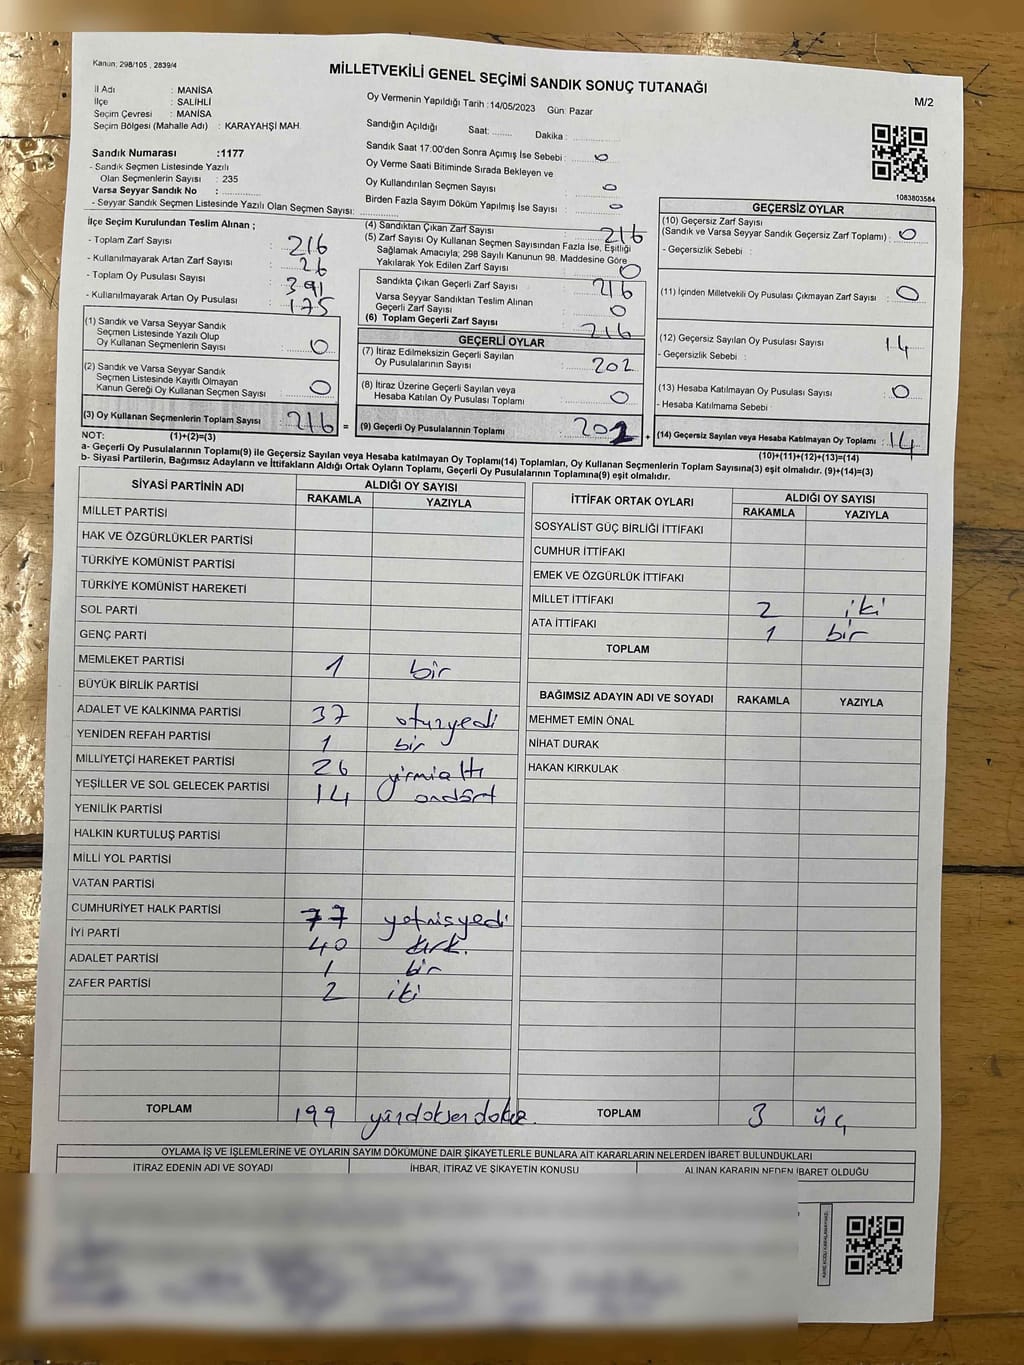 Kanun; 298/105 , 2839/4
MİLLETVEKİLİ GENEL SEÇİMİ SANDIK SONUÇ TUTANAĞI
M/2
İl Adı : MANİSA
İlçe : SALİHLİ
Seçim Çevresi : MANİSA
Seçim Bölgesi (Mahalle Adı) : KARAYAHŞİ MAH.
Sandık Numarası :1177
- Sandık Seçmen Listesinde Yazılı
Olan Seçmenlerin Sayısı : 235
Varsa Seyyar Sandık No :
- Seyyar Sandık Seçmen Listesinde Yazılı Olan Seçmen Sayısı:
Oy Vermenin Yapıldığı Tarih : 14/05/2023 Gün: Pazar
Sandığın Açıldığı Saat: Dakika :
Sandık Saat 17:00'den Sonra Açımış İse Sebebi : 0
Oy Verme Saati Bitiminde Sırada Bekleyen ve
Oy Kullandırılan Seçmen Sayısı : 0
Birden Fazla Sayım Döküm Yapılmış İse Sayısı : 0
1083803584
İlçe Seçim Kurulundan Teslim Alınan ;
- Toplam Zarf Sayısı : 216
- Kullanılmayarak Artan Zarf Sayısı : 26
- Toplam Oy Pusulası Sayısı : 391
- Kullanılmayarak Artan Oy Pusulası : 175
(1) Sandık ve Varsa Seyyar Sandık
Seçmen Listesinde Yazılı Olup
Oy Kullanan Seçmenlerin Sayısı : 0
(2) Sandık ve Varsa Seyyar Sandık
Seçmen Listesinde Kayıtlı Olmayan
Kanun Gereği Oy Kullanan Seçmen Sayısı : 0
(3) Oy Kullanan Seçmenlerin Toplam Sayısı : 216 =
(4) Sandıktan Çıkan Zarf Sayısı : 216
(5) Zarf Sayısı Oy Kullanan Seçmen Sayısından Fazla İse, Eşitliği
Sağlamak Amacıyla; 298 Sayılı Kanunun 98. Maddesine Göre
Yakılarak Yok Edilen Zarf Sayısı : 0
Sandıkta Çıkan Geçerli Zarf Sayısı : 216
Varsa Seyyar Sandıktan Teslim Alınan
Geçerli Zarf Sayısı : 0
(6) Toplam Geçerli Zarf Sayısı : 216
GEÇERLİ OYLAR
(7) İtiraz Edilmeksizin Geçerli Sayılan
Oy Pusulalarının Sayısı : 202
(8) İtiraz Üzerine Geçerli Sayılan veya
Hesaba Katılan Oy Pusulası Toplamı : 0
(9) Geçerli Oy Pusulalarının Toplamı : 202 +
GEÇERSİZ OYLAR
(10) Geçersiz Zarf Sayısı
(Sandık ve Varsa Seyyar Sandık Geçersiz Zarf Toplamı) : 0
- Geçersizlik Sebebi :
(11) İçinden Milletvekili Oy Pusulası Çıkmayan Zarf Sayısı : 0
(12) Geçersiz Sayılan Oy Pusulası Sayısı : 14
- Geçersizlik Sebebi :
(13) Hesaba Katılmayan Oy Pusulası Sayısı : 0
- Hesaba Katılmama Sebebi :
(14) Geçersiz Sayılan veya Hesaba Katılmayan Oy Toplamı : 14
NOT: (1)+(2)=(3) (10)+(11)+(12)+(13)=(14)
a- Geçerli Oy Pusulalarının Toplamı(9) ile Geçersiz Sayılan veya Hesaba Katılmayan Oy Toplamı(14) Toplamları, Oy Kullanan Seçmenlerin Toplam Sayısına(3) eşit olmalıdır. (9)+(14)=(3)
b- Siyasi Partilerin, Bağımsız Adayların ve İttifakların Aldığı Ortak Oyların Toplamı, Geçerli Oy Pusulalarının Toplamına(9) eşit olmalıdır.
SİYASİ PARTİNİN ADI ALDIĞI OY SAYISI
RAKAMLA YAZIYLA
MİLLET PARTİSİ
HAK VE ÖZGÜRLÜKLER PARTİSİ
TÜRKİYE KOMÜNİST PARTİSİ
TÜRKİYE KOMÜNİST HAREKETİ
SOL PARTİ
GENÇ PARTİ
MEMLEKET PARTİSİ 1 bir
BÜYÜK BİRLİK PARTİSİ
ADALET VE KALKINMA PARTİSİ 37 otuzyedi
YENİDEN REFAH PARTİSİ 1 bir
MİLLİYETÇİ HAREKET PARTİSİ 26 yirmialtı
YEŞİLLER VE SOL GELECEK PARTİSİ 14 ondört
YENİLİK PARTİSİ
HALKIN KURTULUŞ PARTİSİ
MİLLİ YOL PARTİSİ
VATAN PARTİSİ
CUMHURİYET HALK PARTİSİ 77 yetmişyedi
İYİ PARTİ 40 kırk.
ADALET PARTİSİ 1 bir
ZAFER PARTİSİ 2 iki
TOPLAM 199 yüzdoksandokuz.
İTTİFAK ORTAK OYLARI ALDIĞI OY SAYISI
RAKAMLA YAZIYLA
SOSYALİST GÜÇ BİRLİĞİ İTTİFAKI
CUMHUR İTTİFAKI
EMEK VE ÖZGÜRLÜK İTTİFAKI
MİLLET İTTİFAKI 2 iki
ATA İTTİFAKI 1 bir
TOPLAM
BAĞIMSIZ ADAYIN ADI VE SOYADI RAKAMLA YAZIYLA
MEHMET EMİN ÖNAL
NİHAT DURAK
HAKAN KIRKULAK
TOPLAM 3 üç
OYLAMA İŞ VE İŞLEMLERİNE VE OYLARIN SAYIM DÖKÜMÜNE DAİR ŞİKAYETLERLE BUNLARA AİT KARARLARIN NELERDEN İBARET BULUNDUKLARI
İTİRAZ EDENİN ADI VE SOYADI İHBAR, İTİRAZ VE ŞİKAYETİN KONUSU ALINAN KARARIN NEDEN İBARET OLDUĞU